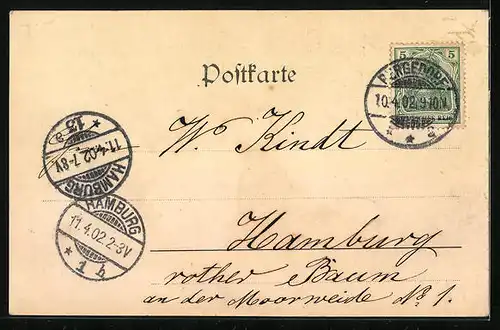 5 5
Postkarte
BERGEDORF
10.4.02.9-10N.
* * a
W. Kindt
* 13 a
11.4.02.7-8V
HAMBURG
HAMBURG
11.4.02.2-3V
* 1 h
Hamburg
rother Baum
an der Moorweide No 1.